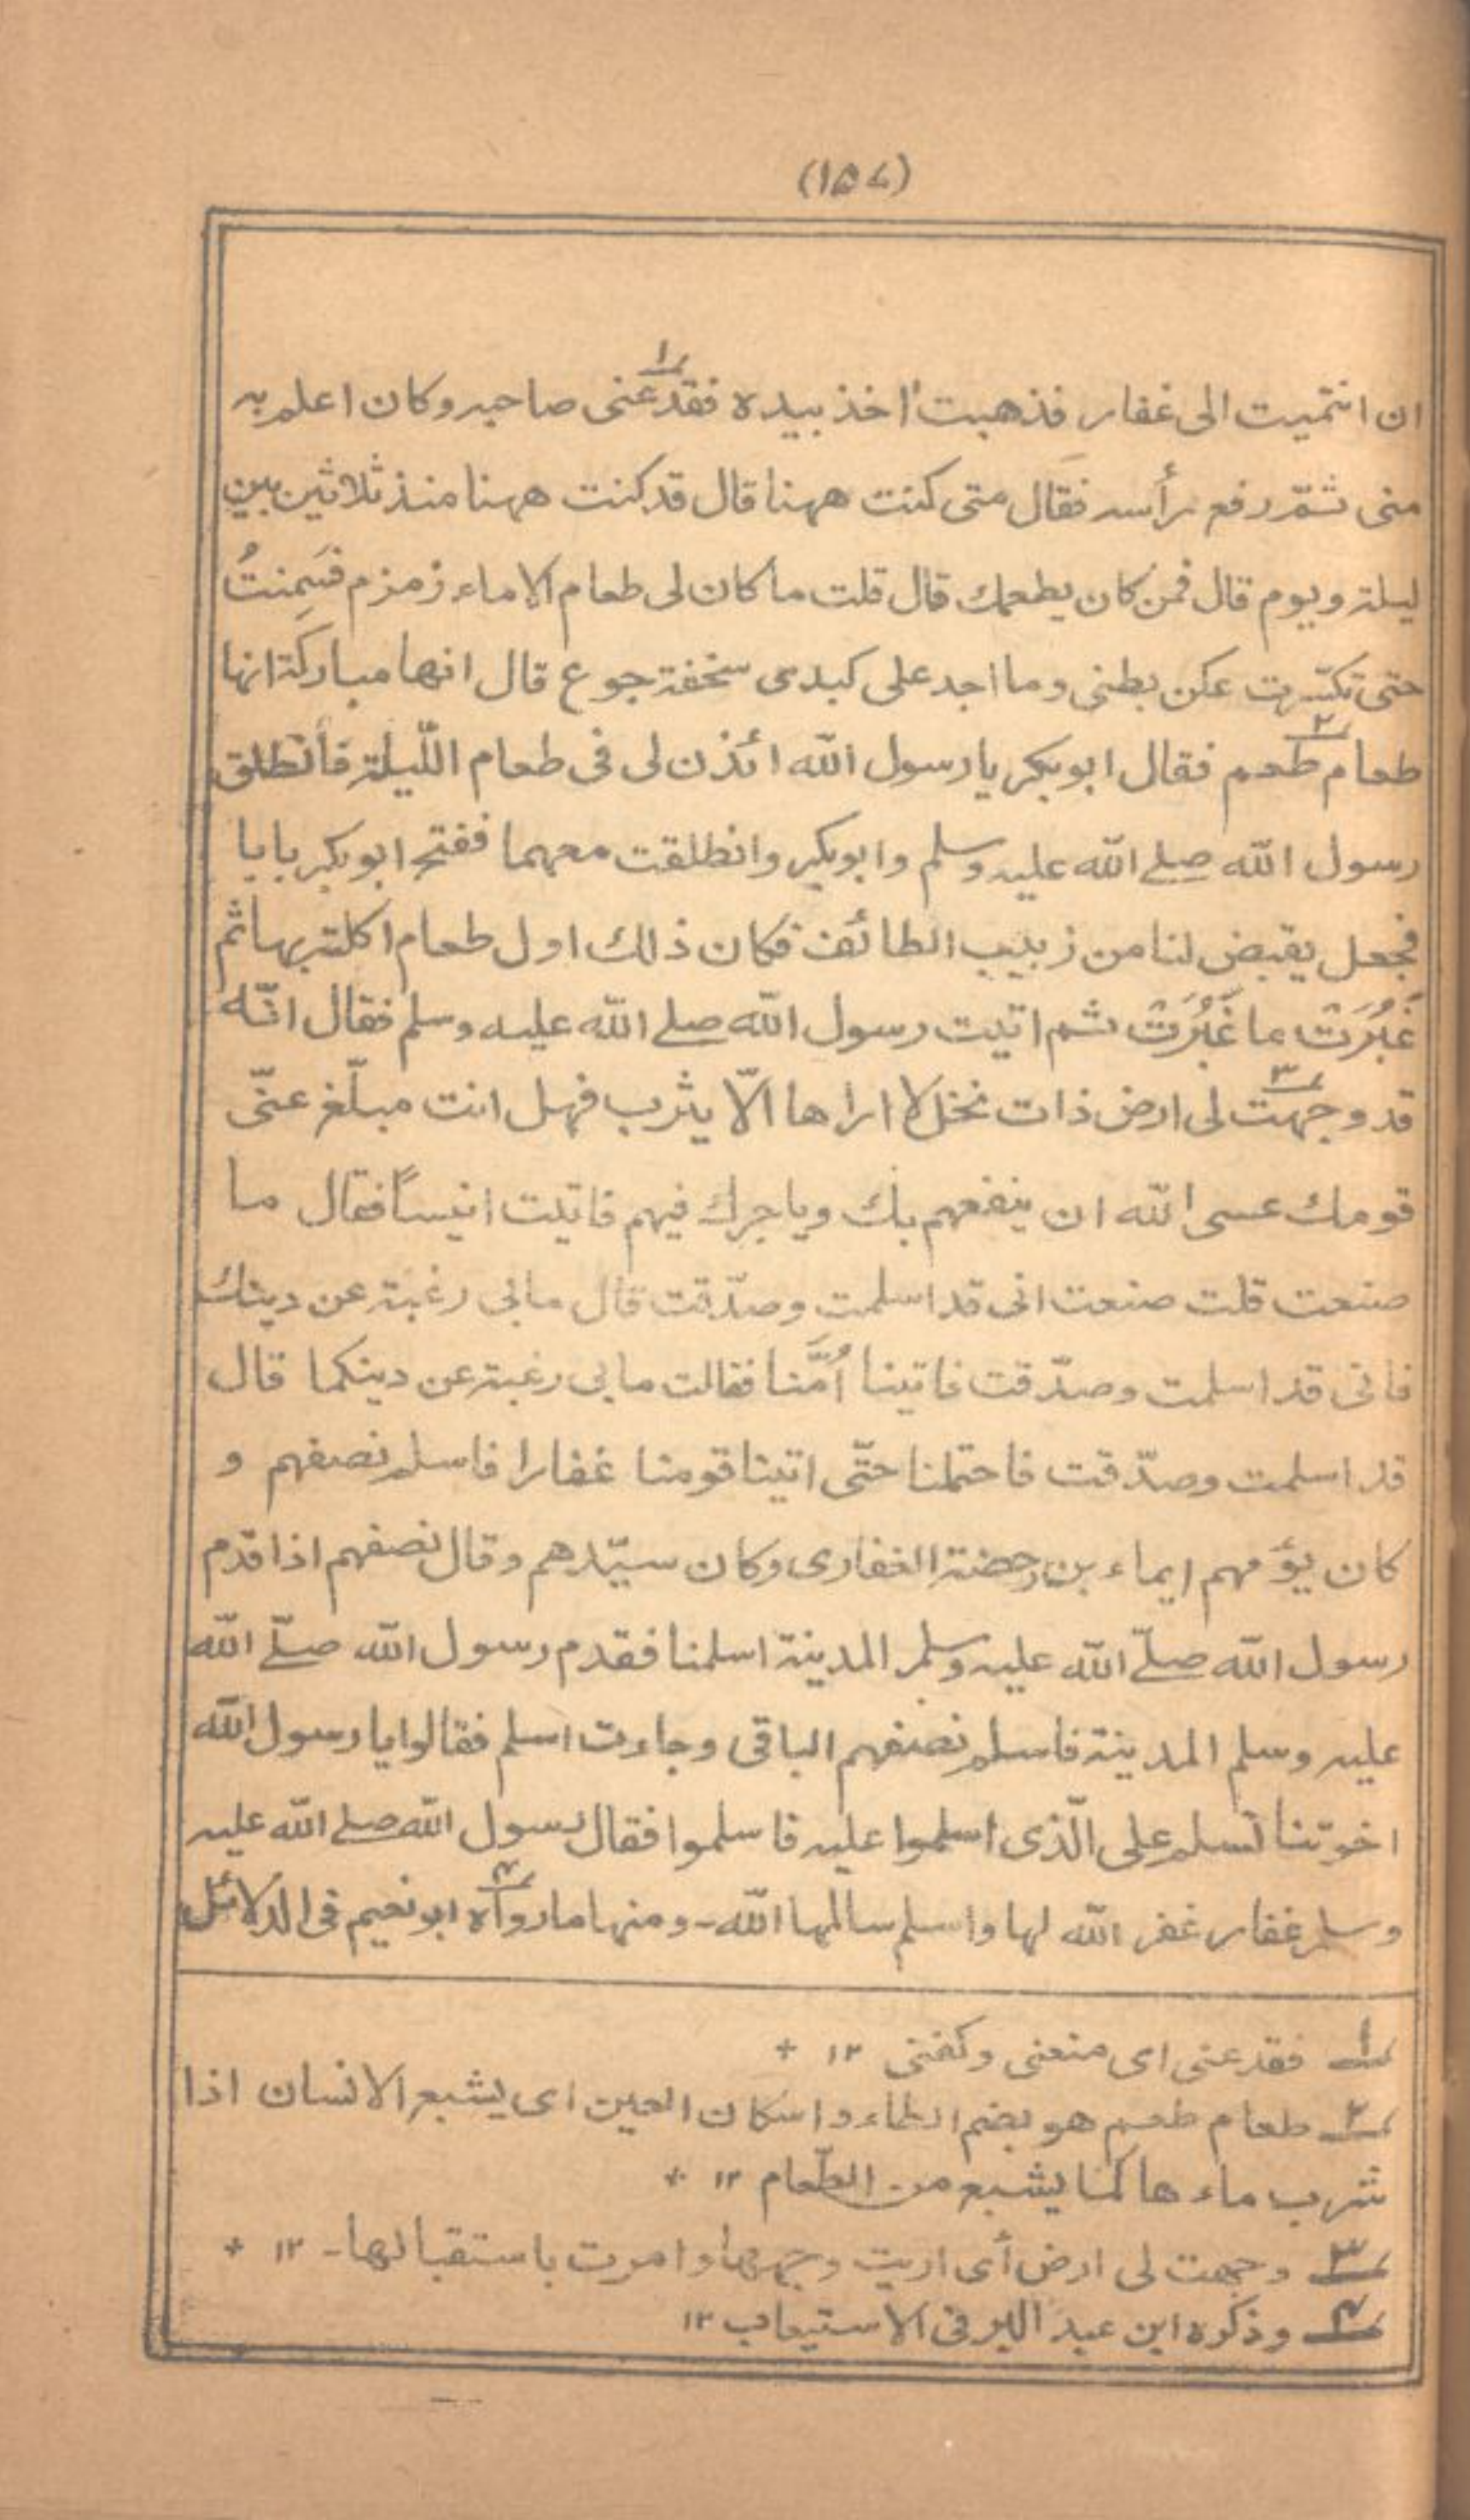 (۱۵۷)
ان انتميت الى غفار فذهبت اخذ بيده فقدعنى صاحبه وكان اعلم به
منى ثمّ رفع رأسه فقال متى كنت ههنا قال قد كنت ههنا منذ ثلاثين بين
ليلة ويوم قال فمن كان يطعمك قال قلت ما كان لى طعام الا ماء زمزم فسَمِنتُ
حتى تكسّرت عكن بطنى وما اجد على كبدى سخفة جوع قال انها مباركة انها
طعام طعم فقال ابوبكر يا رسول الله ائذن لى فى طعام اللّيلة فانطلق
رسول الله صلے الله عليه وسلم وابوبكر وانطلقت معهما ففتح ابوبكر بابا
فجعل يقبض لنا من زبيب الطائف فكان ذلك اول طعام اكلته بها ثم
غَبُرَتْ ما غَبُرَتْ ثم اتيت رسول الله صلے الله عليه وسلم فقال انّه
قد وجهت لى ارض ذات نخل لا اراها الّا يثرب فهل انت مبلّغ عنّى
قومك عسى الله ان ينفعهم بك وياجرك فيهم فاتيت انيساً فقال ما
صنعت قلت صنعت انى قد اسلمت وصدّقت قال مابى رغبة عن دينك
فانى قد اسلمت وصدّقت فاتينا اُمَّنا فقالت مابى رغبة عن دينكما قال
قد اسلمت وصدّقت فاحتملنا حتّى اتينا قومنا غفارا فاسلم نصفهم و
كان يؤمهم ايماء بن رحضة الغفارى وكان سيّدهم وقال نصفهم اذا قدم
رسول الله صلّے الله عليه وسلم المدينة اسلمنا فقدم رسول الله صلّے الله
عليه وسلم المدينة فاسلم نصفهم الباقى وجاءت اسلم فقالوا يا رسول الله
اخوتنا نسلم على الّذى اسلموا عليه فاسلموا فقال رسول الله صلے الله عليه
وسلم غفار غفر الله لها واسلم سالمها الله۔ ومنها مارواه ابونعيم فى الدلائل
۱ فقدعنى اى منعنى وكفنى ۱۲ +
۲ طعام طعم هو بضم الطاء واسكان العين اى يشبع الانسان اذا
شرب ماءها كما يشبع من الطّعام ۱۲ +
۳ وجهت لى ارض أى اريت وجهها وامرت باستقبالها۔ ۱۲ +
۴ وذكره ابن عبد البر فى الاستيعاب ۱۲